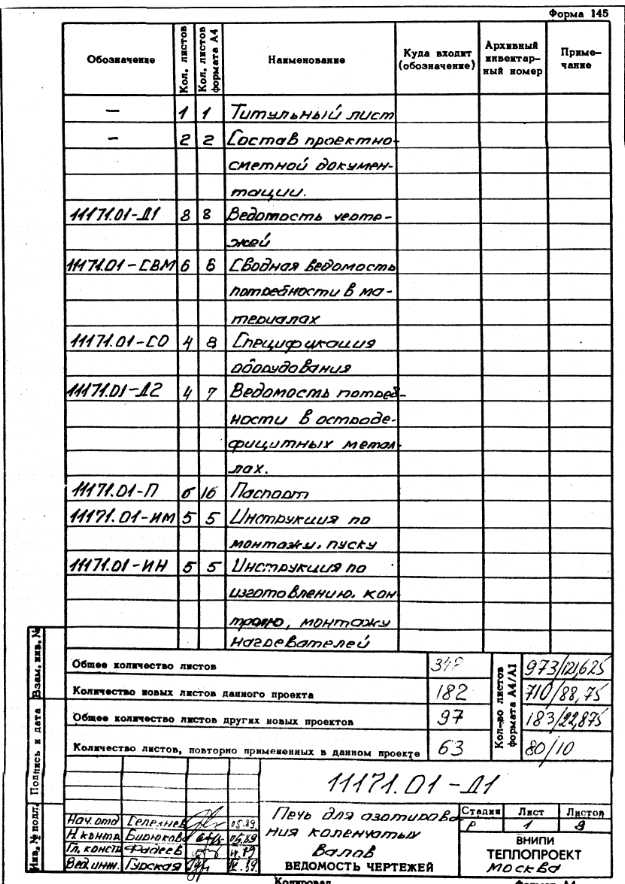 Форма 145
Обозначение Кол. листов Кол. листов формата А4 Наименование Куда входит (обозначение) Архивный инвентарный номер Примечание
— 1 1 Титульный лист
— 2 2 Состав проектно-
сметной докумен-
тации.
11171.01-Д1 8 8 Ведомость черте-
жей
11171.01-СВМ 6 6 Сводная ведомость
потребности в ма-
териалах
11171.01-СО 4 8 Спецификация
оборудования
11171.01-Д2 4 7 Ведомость потреб-
ности в остроде-
фицитных метал-
лах.
11171.01-П 6 16 Паспорт
11171.01-ИМ 5 5 Инструкция по
монтажу, пуску
11171.01-ИН 5 5 Инструкция по
изготовлению, кон
тролю, монтажу
нагревателей
Общее количество листов 342 973/121,625
Количество новых листов данного проекта 182 710/88,75
Общее количество листов других новых проектов 97 183/22,875
Количество листов, повторно примененных в данном проекте 63 80/10
Кол-во листов формата А4/А1
Взам. инв. №
Подпись и дата
Инв. № подл.
11171.01-Д1
Нач. отд Селезнев 05.89
Н. контр Бирюкова 05.89
Гл. констр Фадеев
Вед. инж. Гурская
Печь для азотирова
ния коленчатых
валов
ВЕДОМОСТЬ ЧЕРТЕЖЕЙ
Стадия Лист Листов
Р 1 8
ВНИПИ
ТЕПЛОПРОЕКТ
Москва
Копировал Формат А4